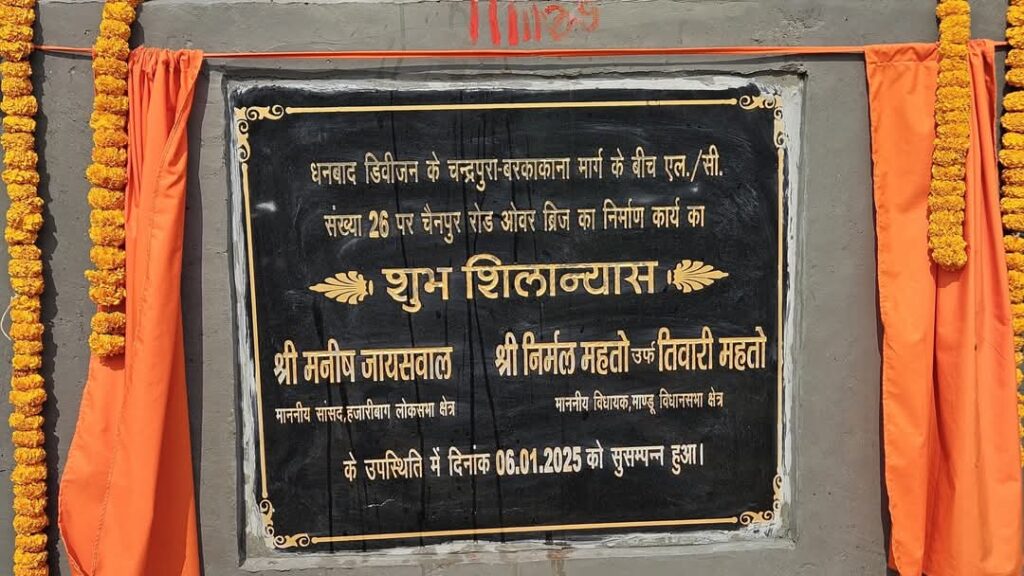 धनबाद डिवीजन के चन्द्रपुरा-बरकाकाना मार्ग के बीच एल./सी.
संख्या 26 पर चैनपुर रोड ओवर ब्रिज का निर्माण कार्य का
शुभ शिलान्यास
श्री मनीष जायसवाल
माननीय सांसद,हजारीबाग लोकसभा क्षेत्र
श्री निर्मल महतो उर्फ तिवारी महतो
माननीय विधायक,माण्डू विधानसभा क्षेत्र
के उपस्थिति में दिनांक 06.01.2025 को सुसम्पन्न हुआ।